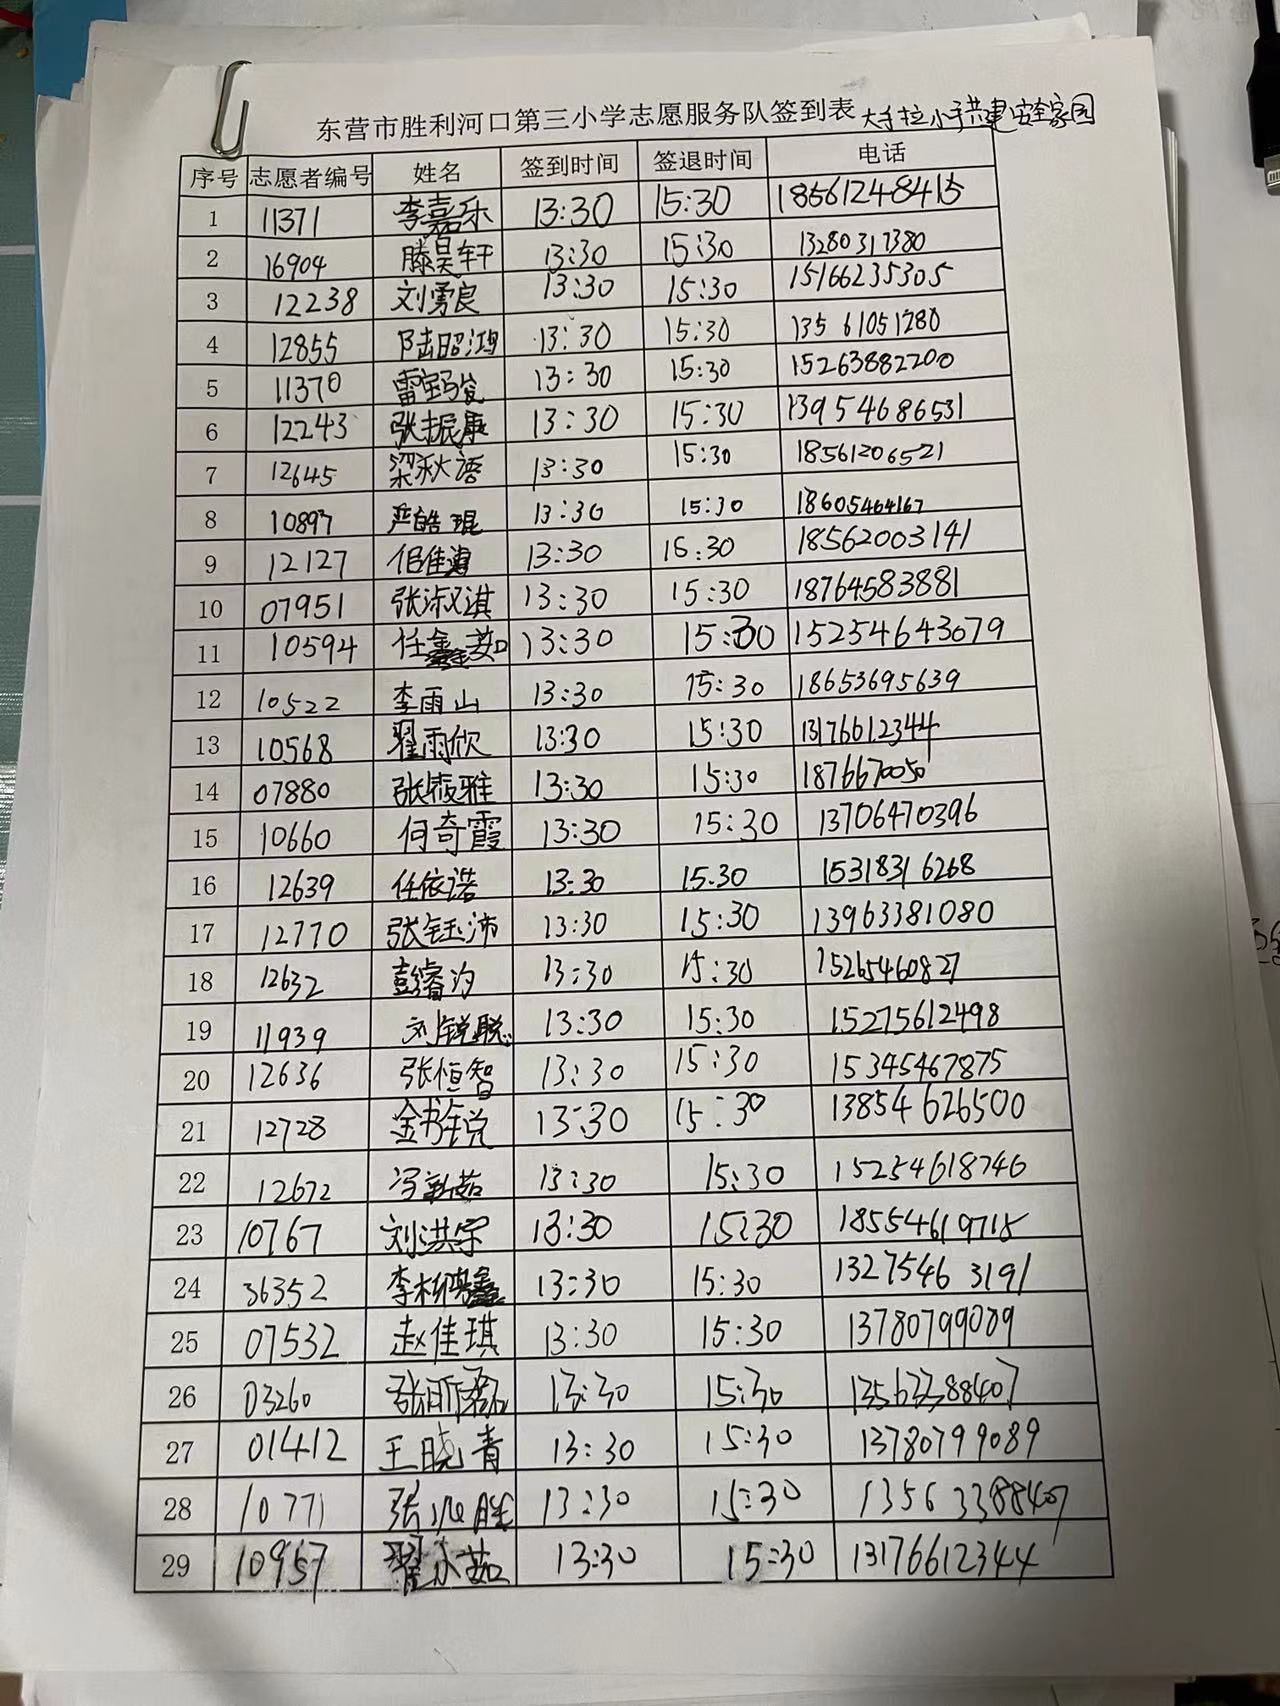 东营市胜利河口第三小学志愿服务队签到表 大手拉小手共建安全家园
序号 志愿者编号 姓名 签到时间 签退时间 电话
1 11371 李嘉乐 13:30 15:30 18561248415
2 16904 滕昊轩 13:30 15:30 13280317380
3 12238 刘勇良 13:30 15:30 15166235305
4 12855 陆昭鸿 13:30 15:30 13561051280
5 11370 13:30 15:30 15263882200
6 12243 张振康 13:30 15:30 13954686531
7 12645 梁秋语 13:30 15:30 18561206521
8 10897 严皓琨 13:30 15:30 18605464167
9 12127 13:30 15:30 18562003141
10 07951 张淑淇 13:30 15:30 18764583881
11 10594 任鑫茹 13:30 15:30 15254643079
12 10522 李雨山 13:30 15:30 18653695639
13 10568 翟雨欣 13:30 15:30 13176612344
14 07880 张筱雅 13:30 15:30 1876670050
15 10660 何奇霞 13:30 15:30 13706470396
16 12639 任依诺 13:30 15:30 15318316268
17 12770 张钰沛 13:30 15:30 13963381080
18 12632 彭睿汐 13:30 15:30 15265460827
19 11939 刘锐聪 13:30 15:30 15275612498
20 12636 张恒智 13:30 15:30 15345467875
21 12728 金书锐 13:30 15:30 13854626500
22 12672 冯新茹 13:30 15:30 15254618746
23 10767 刘洪宇 13:30 15:30 18554619715
24 36352 13:30 15:30 13275463191
25 07532 赵佳琪 13:30 15:30 13780799089
26 03260 13:30 15:30 13563388407
27 01412 王晓青 13:30 15:30 13780799089
28 10771 张兆胜 13:30 15:30 13563388407
29 10957 翟亦茹 13:30 15:30 13176612344